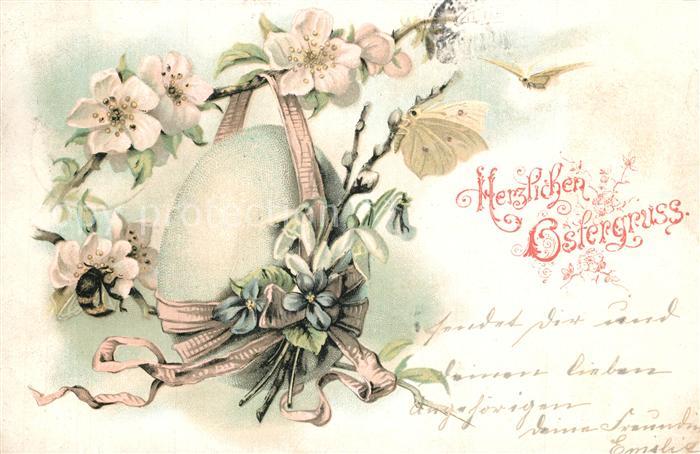 Herzlichen
Ostergruss.
sendet dir und
deinen lieben
Angehörigen
deine Freundin
Emilie